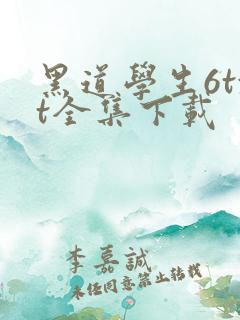 黑道學生6tx
t全集下載
李嘉誠
未經同意禁止轉載